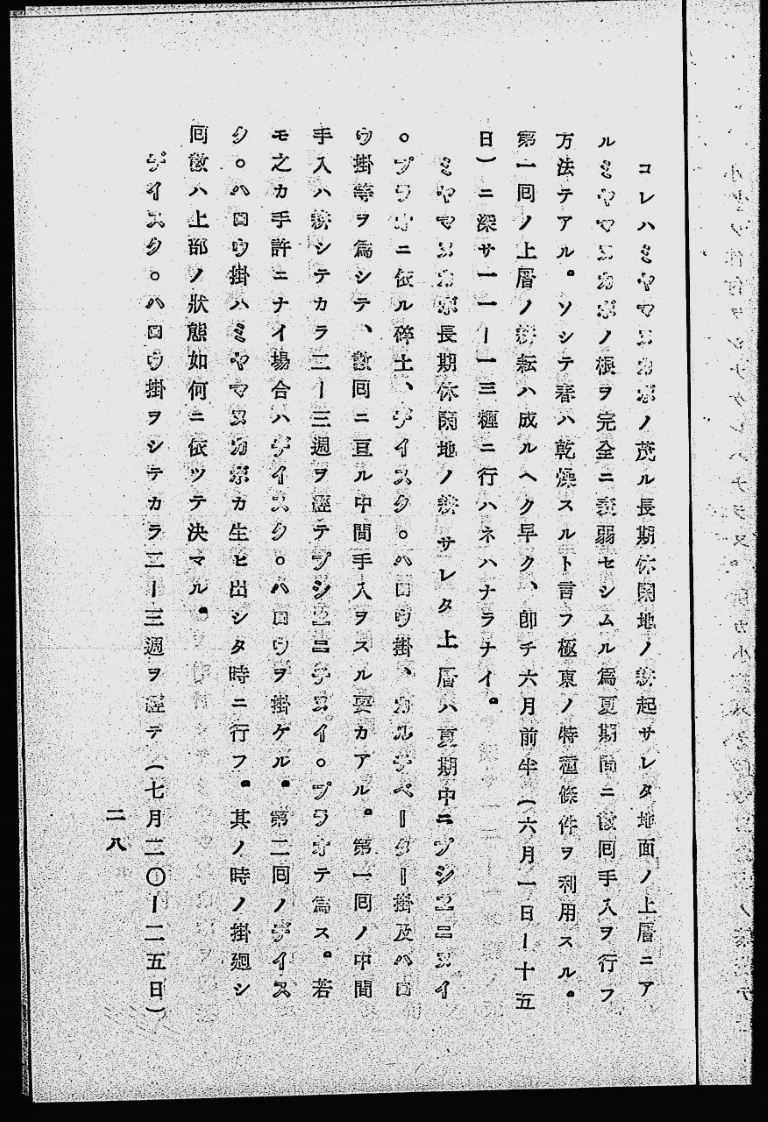 コレハミヤマヌカボノ茂ル長期休閑地ノ耕起サレタ地面ノ上層ニア
ルミヤマヌカボノ根ヲ完全ニ衰弱セシムル為夏期間ニ数回手入ヲ行フ
方法テアル。ソシテ春ハ乾燥スルト言フ極東ノ特種條件ヲ利用スル。
第一回ノ上層ノ耕耘ハ成ルヘク早ク、即チ六月前半(六月一日ー十五
日)ニ深サ一一ー一三糎ニ行ハネハナラナイ。
ミヤマヌカボ長期休閑地ノ耕サレタ上層ハ夏期中ニプシエニヌイ
。プラオニ依ル碎土、デイスク。ハロウ掛、カルチベーター掛及ハロ
ウ掛等ヲ為シテ、数回ニ亘ル中間手入ヲスル要カアル。第一回ノ中間
手入ハ耕シテカラ二ー三週ヲ経テプシエニチヌイ。プラオテ為ス。若
モ之カ手許ニナイ場合ハデイスク。ハロウヲ掛ケル。第二回ノデイス
ク。ハロウ掛ハミヤマヌカボカ生ヒ出シタ時ニ行フ。其ノ時ノ掛廻シ
回数ハ上部ノ狀態如何ニ依ツテ決マル。
デイスク。ハロウ掛ヲシテカラ二ー三週ヲ経テ(七月二〇ー二五日)
二八